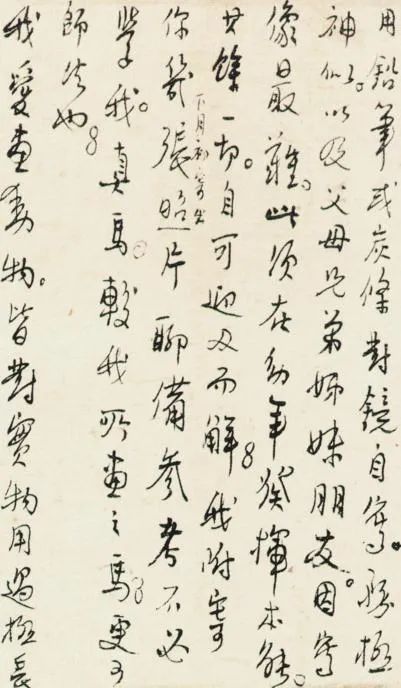 用鉛筆或炭條對鏡自寫。務極
神似。以及父母兄弟姊妹朋友。因寫
像最難。此須在幼年發揮本能。
其餘一切。自可迎刃而解。我附寄
下月初寄出
你幾張照片聊備參考不必
學我。真馬。較我所畫之馬。更可
師法也。
我愛畫動物。皆對實物用過極長